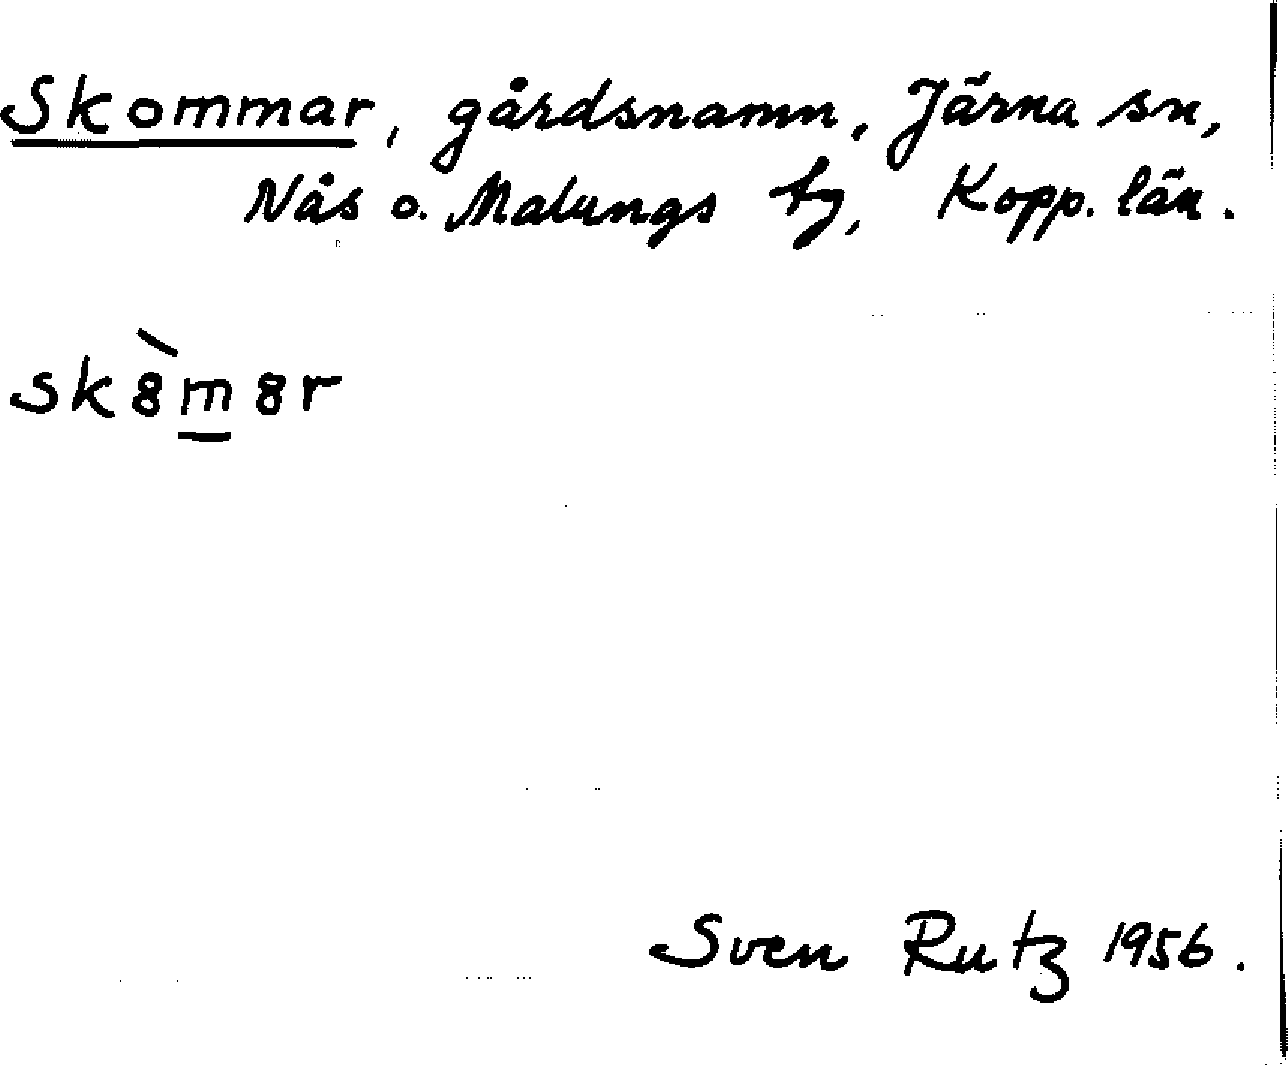 Skommar, gårdsnamn, Järna sn,
Nås o. Malungs tg, Kopp. län.
sk8̀m̲8r
Sven Rutz 1956.